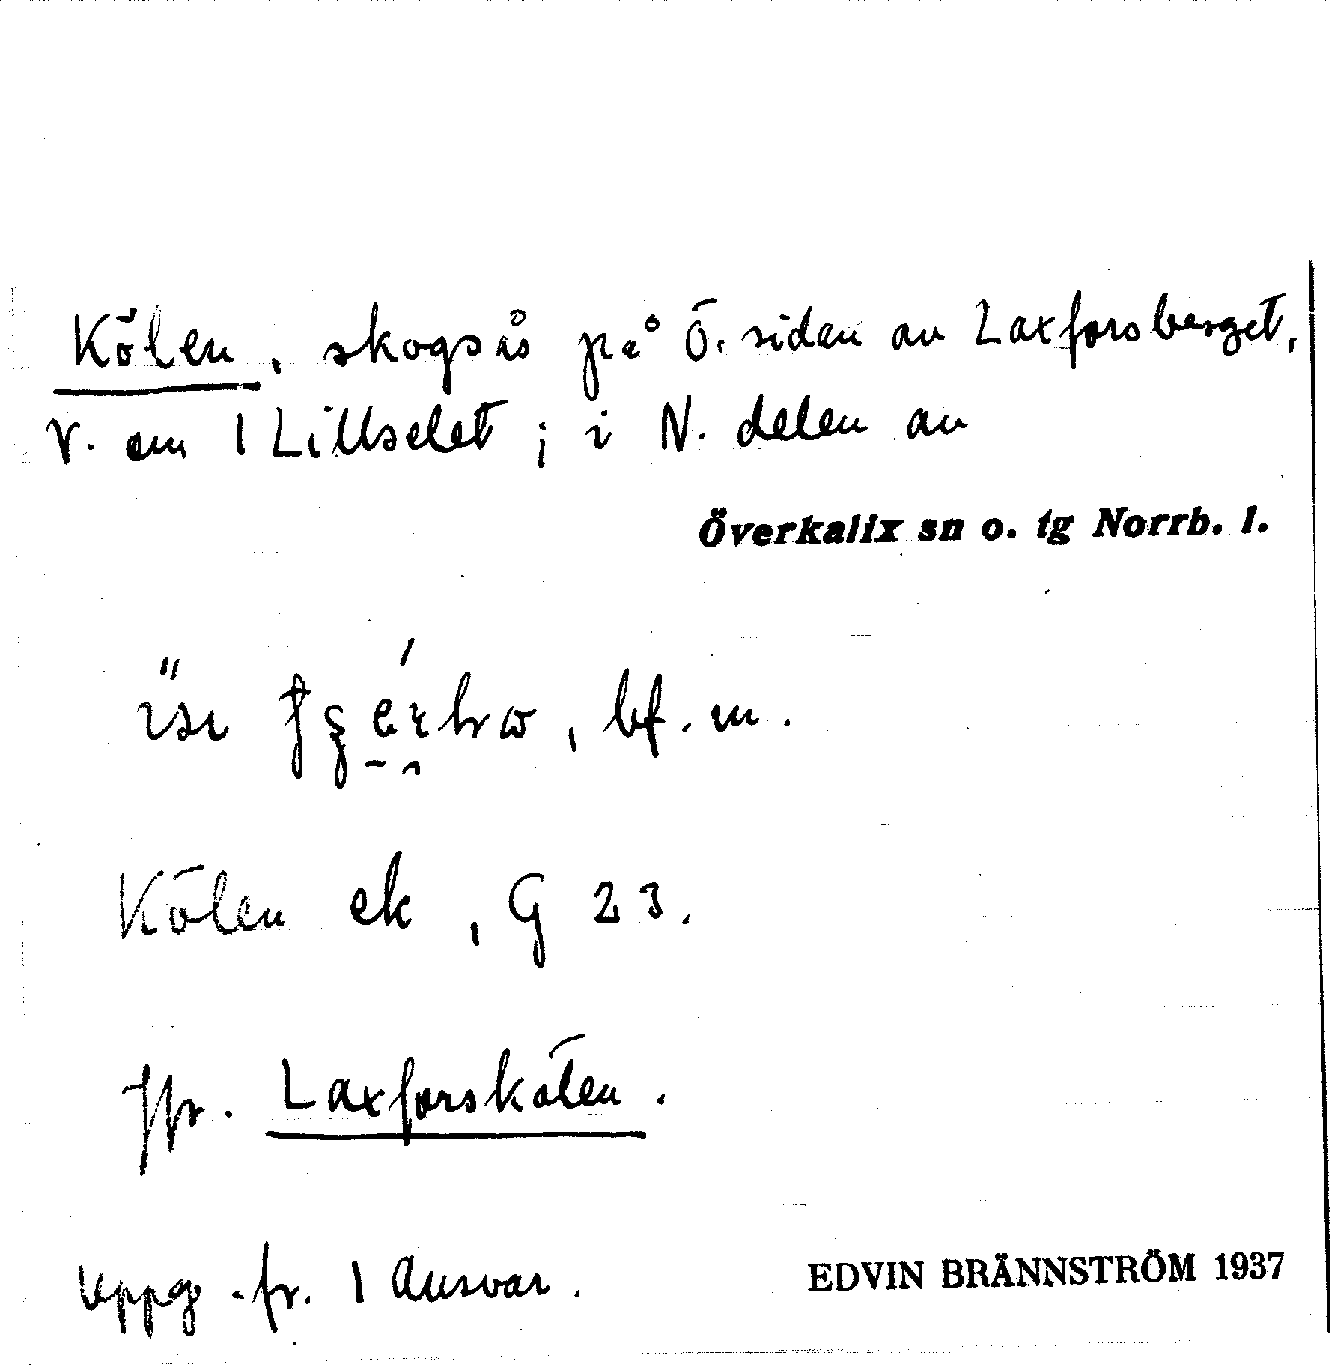 Kölen, skogsås på Ö. sidan av Laxforsberget,
V. om 1 Lillselet; i N. delen av
Överkalix sn o. tg Norrb. l.
, bf. m.
Kölen ek, G 23.
Jfr. Laxforskölen.
Uppg. fr. 1 Ansvar.
EDVIN BRÄNNSTRÖM 1937